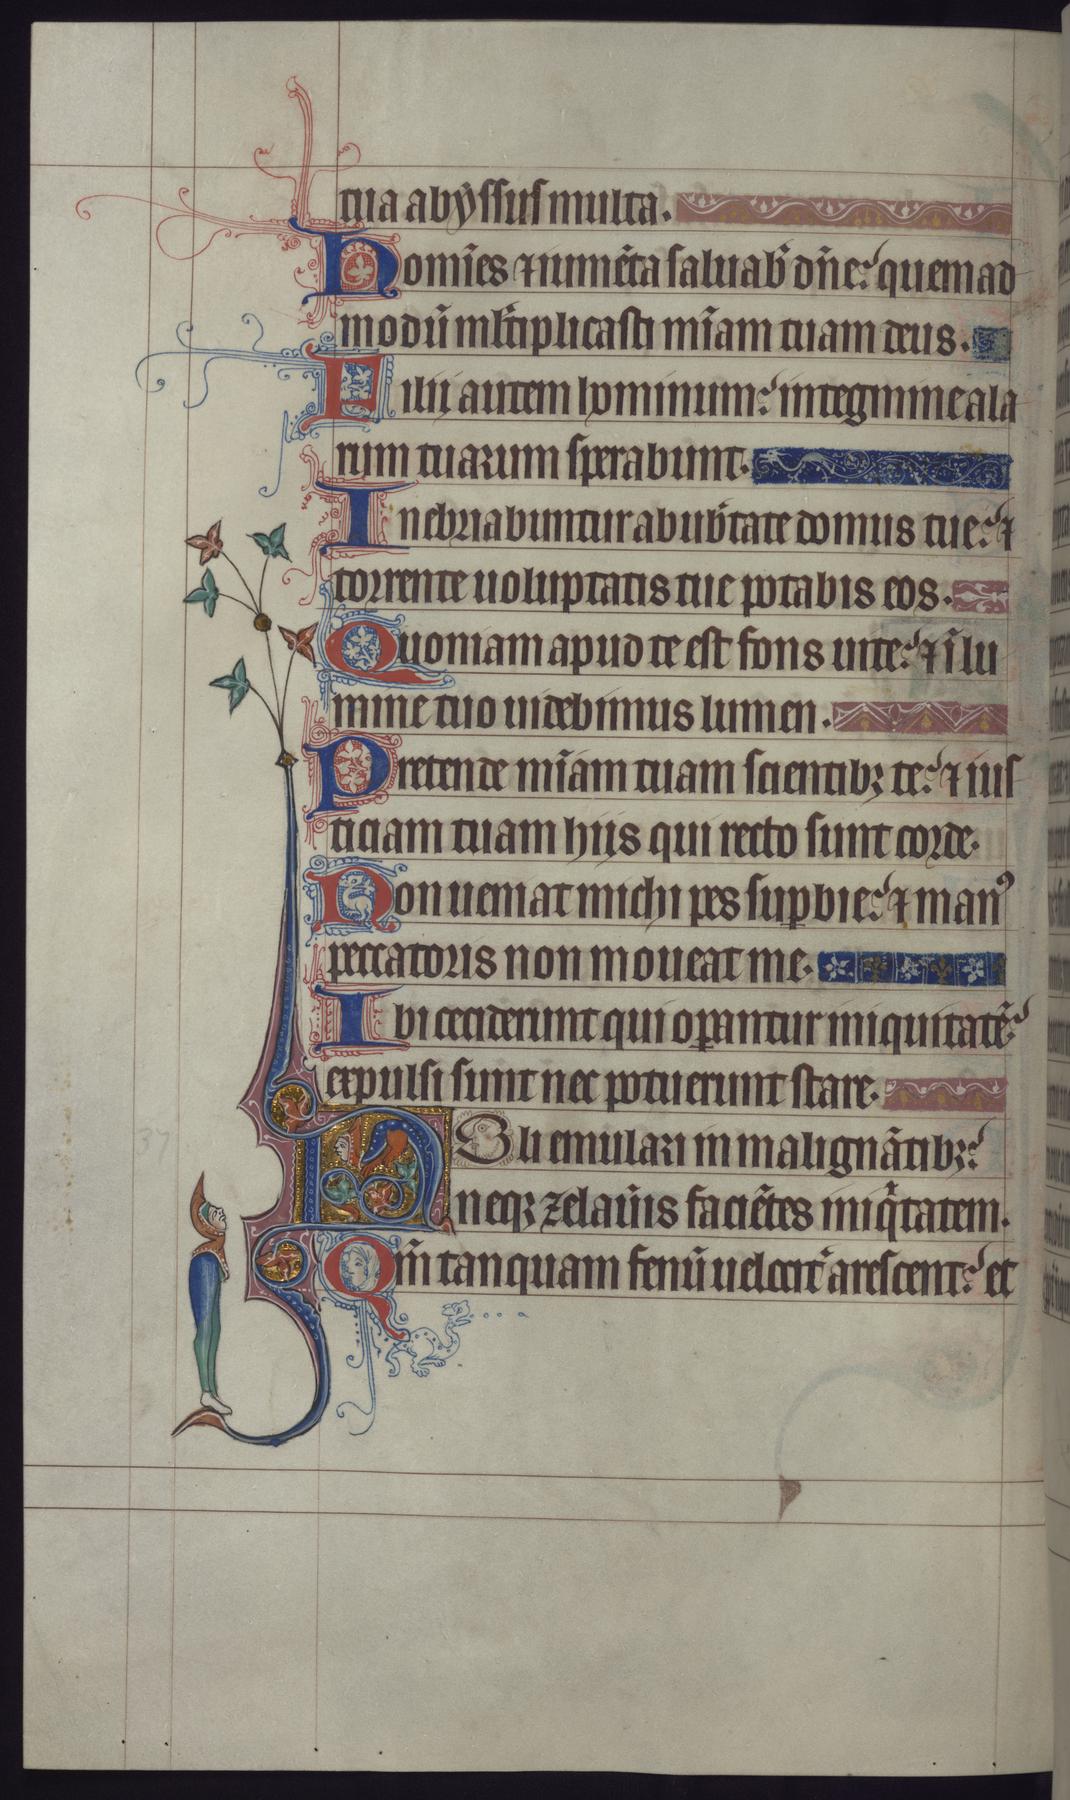 tua abyssus multa.
Homīes ⁊ iumēta saluab̄ dn̄e: quemad
modū ml̄tiplicasti mīam tuam deus.
Filij autem hominum: in tegmine ala
rum tuarum sperabunt.
Inebriabuntur ab ub̄tate domus tue: ⁊
torrente uoluptatis tue potabis eos.
Quoniam apud te est fons uite: ⁊ ī lu
mine tuo uidebimus lumen.
Pretende mīam tuam scientibꝫ te: ⁊ ius
ticiam tuam hiis qui recto sunt corde.
Non ueniat michi pes suꝑbie: ⁊ manꝰ
peccatoris non moueat me.
Ibi ceciderunt qui oꝑantur iniquitatē:
expulsi sunt nec potuerunt stare.
Noli emulari in malignātibꝫ:
neqꝫ zelau̅is faciētes iniq̄tatem.
Qm̄ tanquam fenū uelocit̄ arescent: et
37